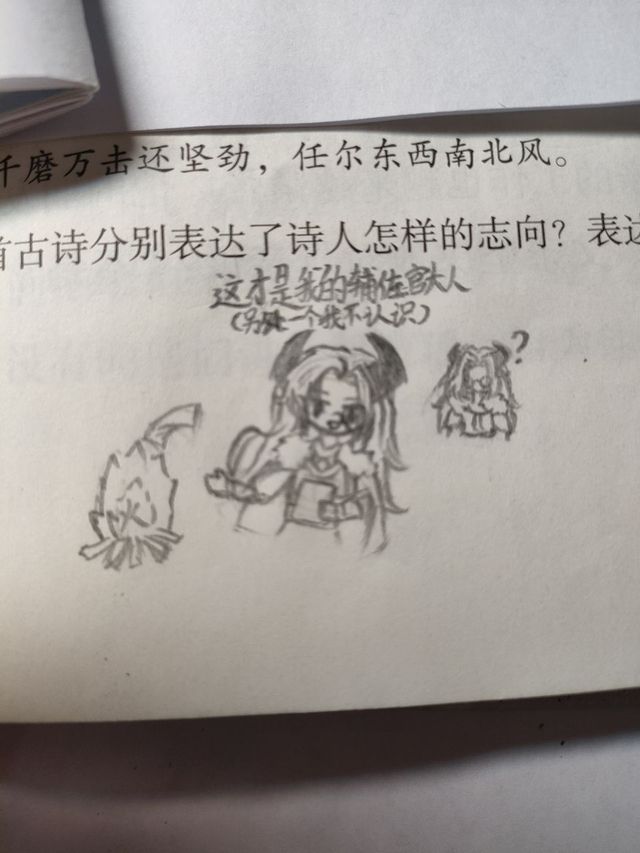 千磨万击还坚劲，任尔东西南北风。
首古诗分别表达了诗人怎样的志向？表达
这才是我的辅佐官大人
(另外一个我不认识)
?
火